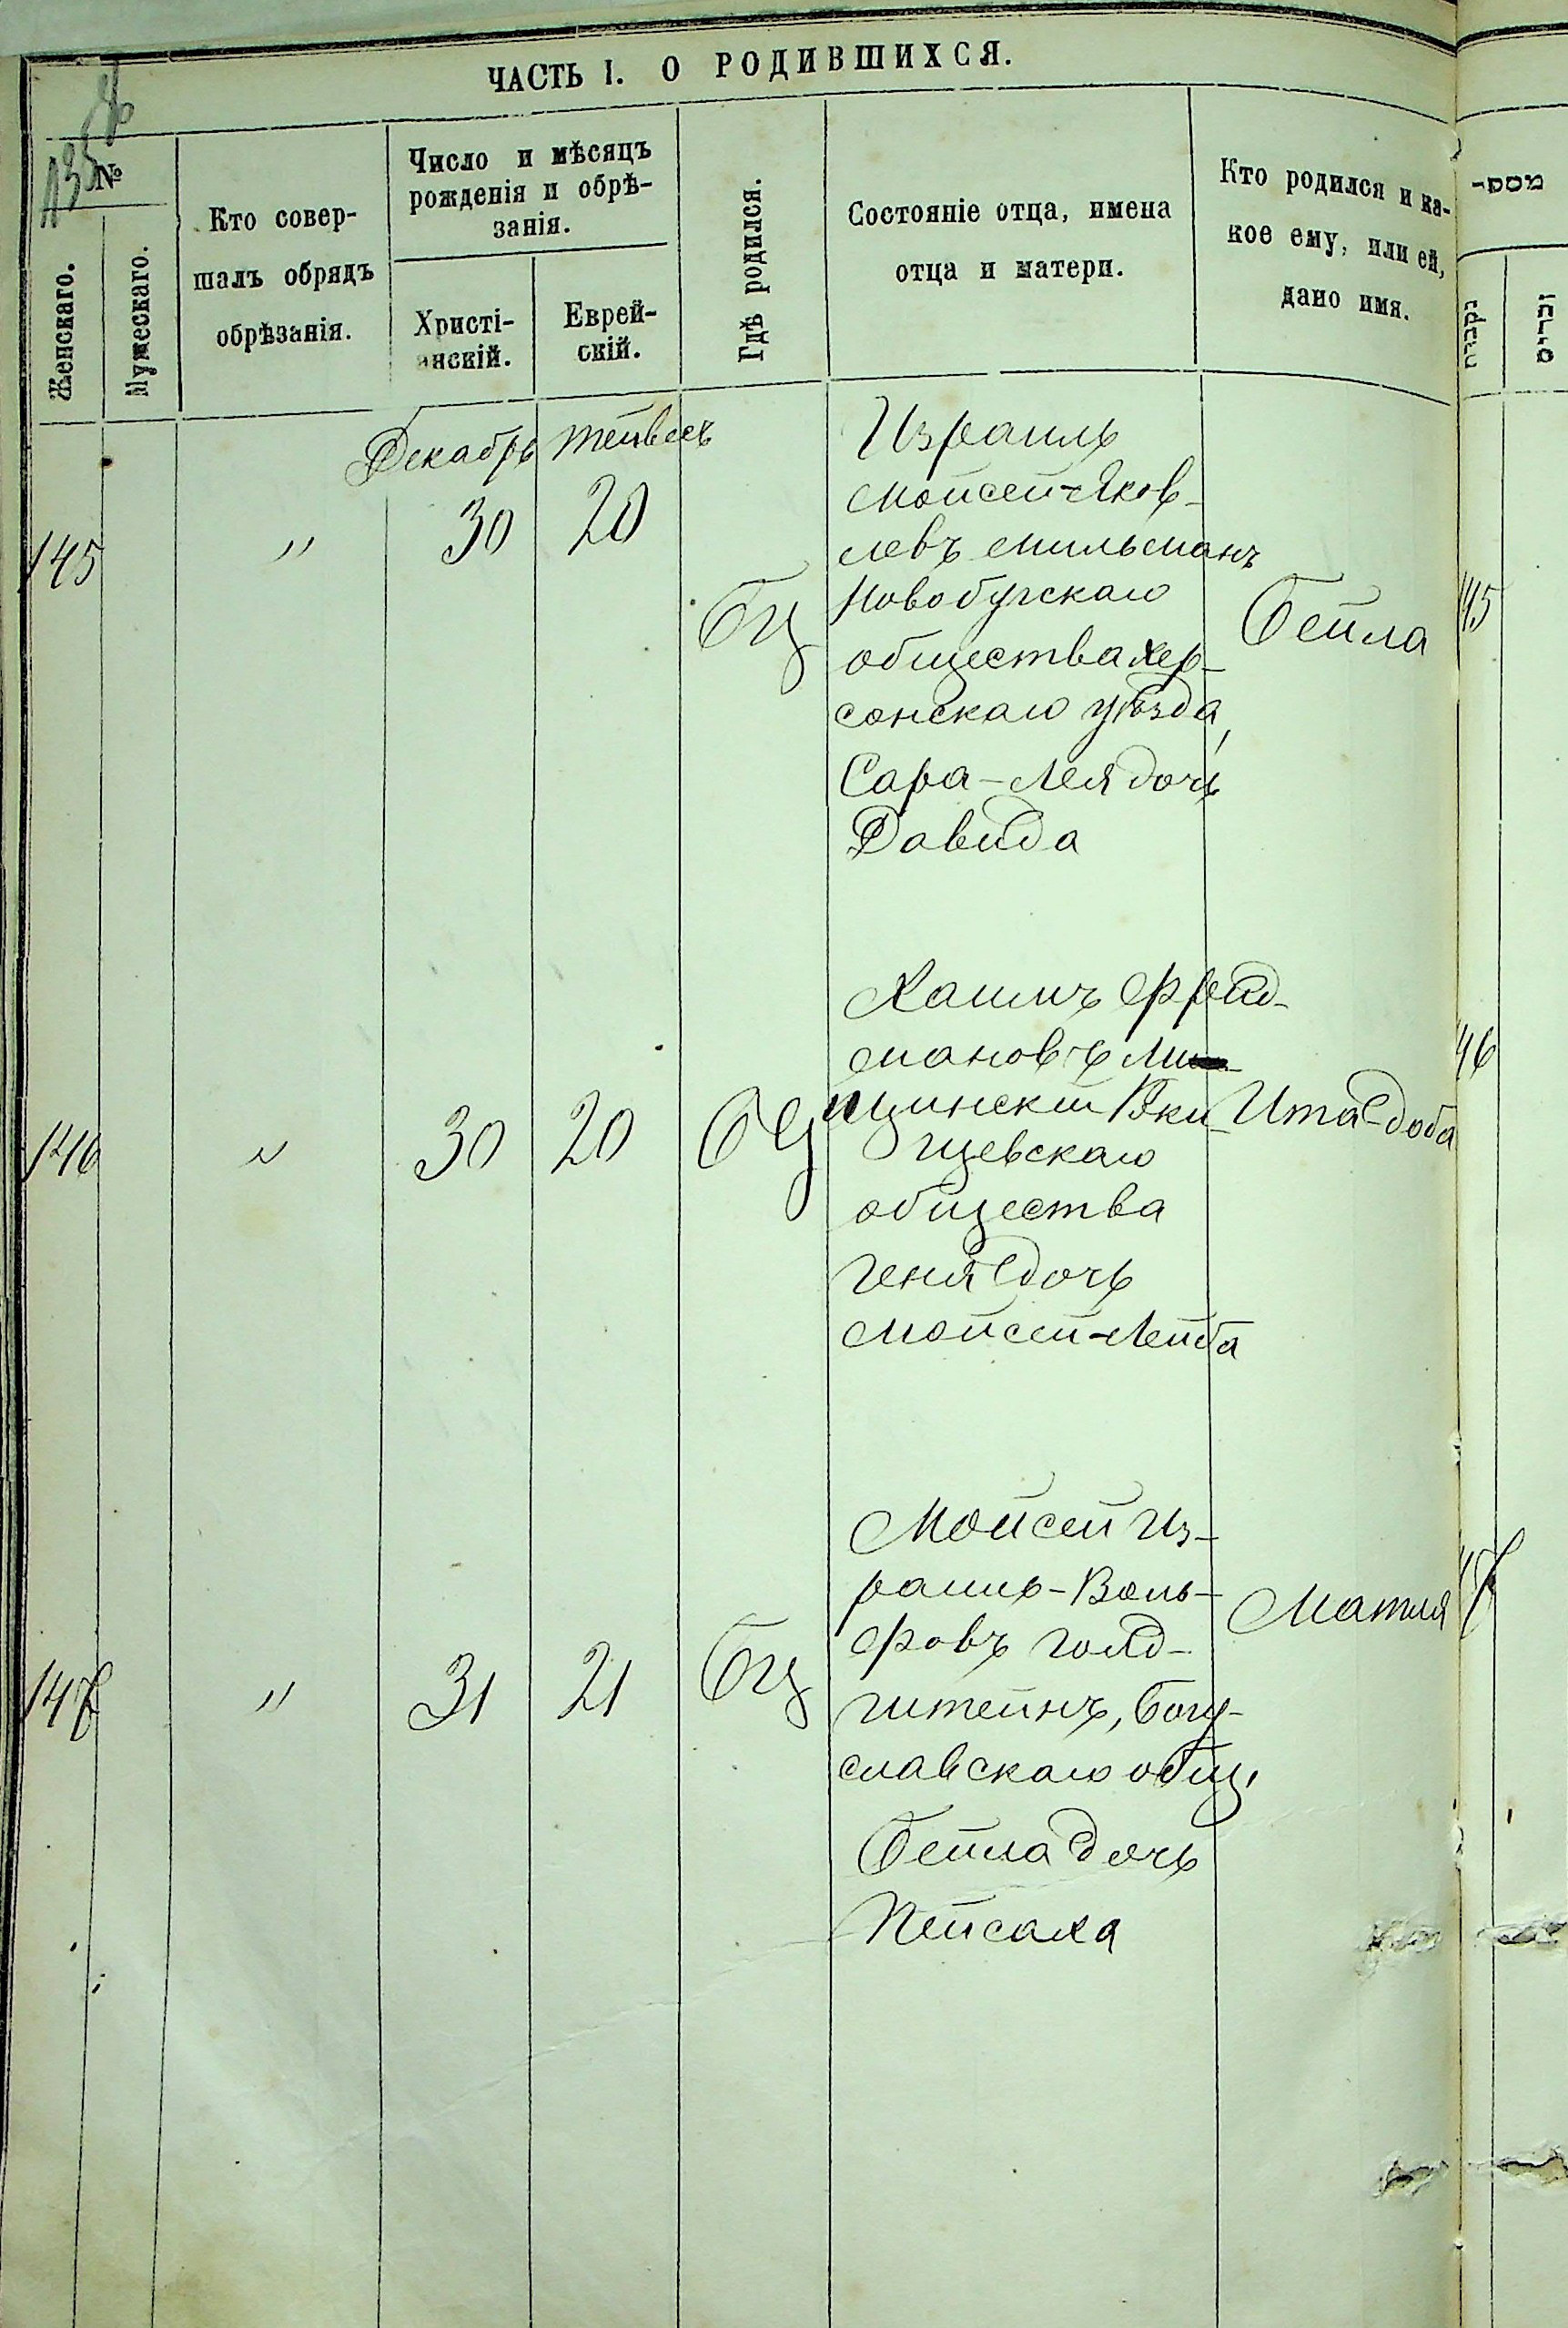 ЧАСТЬ I. О РОДИВШИХСЯ.
№
Женскаго.
Мужескаго.
Кто совер-
шалъ обрядъ
обрѣзанія.
Число и мѣсяцъ
рожденія и обрѣ-
занія.
Христі-
анскій.
Еврей-
скій.
Гдѣ родился.
Состояніе отца, имена
отца и матери.
Кто родился и ка-
кое ему, или ей,
дано имя.
מספר
נקבות
זכרים
Декабрь Тейвесъ
145 " 30 20 БЦ
Израиль
Мойсей-Яков-
левъ Мильманъ
Новобугскаго
общества Хер-
сонскаго уѣзда,
Сара-Лея дочь
Давида
Бейла
45
146 " 30 20 БЦ
Хаимъ Фрейд-
мановъ Ли
щинскій
щевскаго
общества
Геня дочь
Мойсей-Лейба
Ита-Доба
46
147 " 31 21 БЦ
Мойсей Из-
раиль-Воль-
фовъ Голд-
штейнъ, Богу-
славскаго общ,
Бейла дочь
Пейсаха
Матля
47